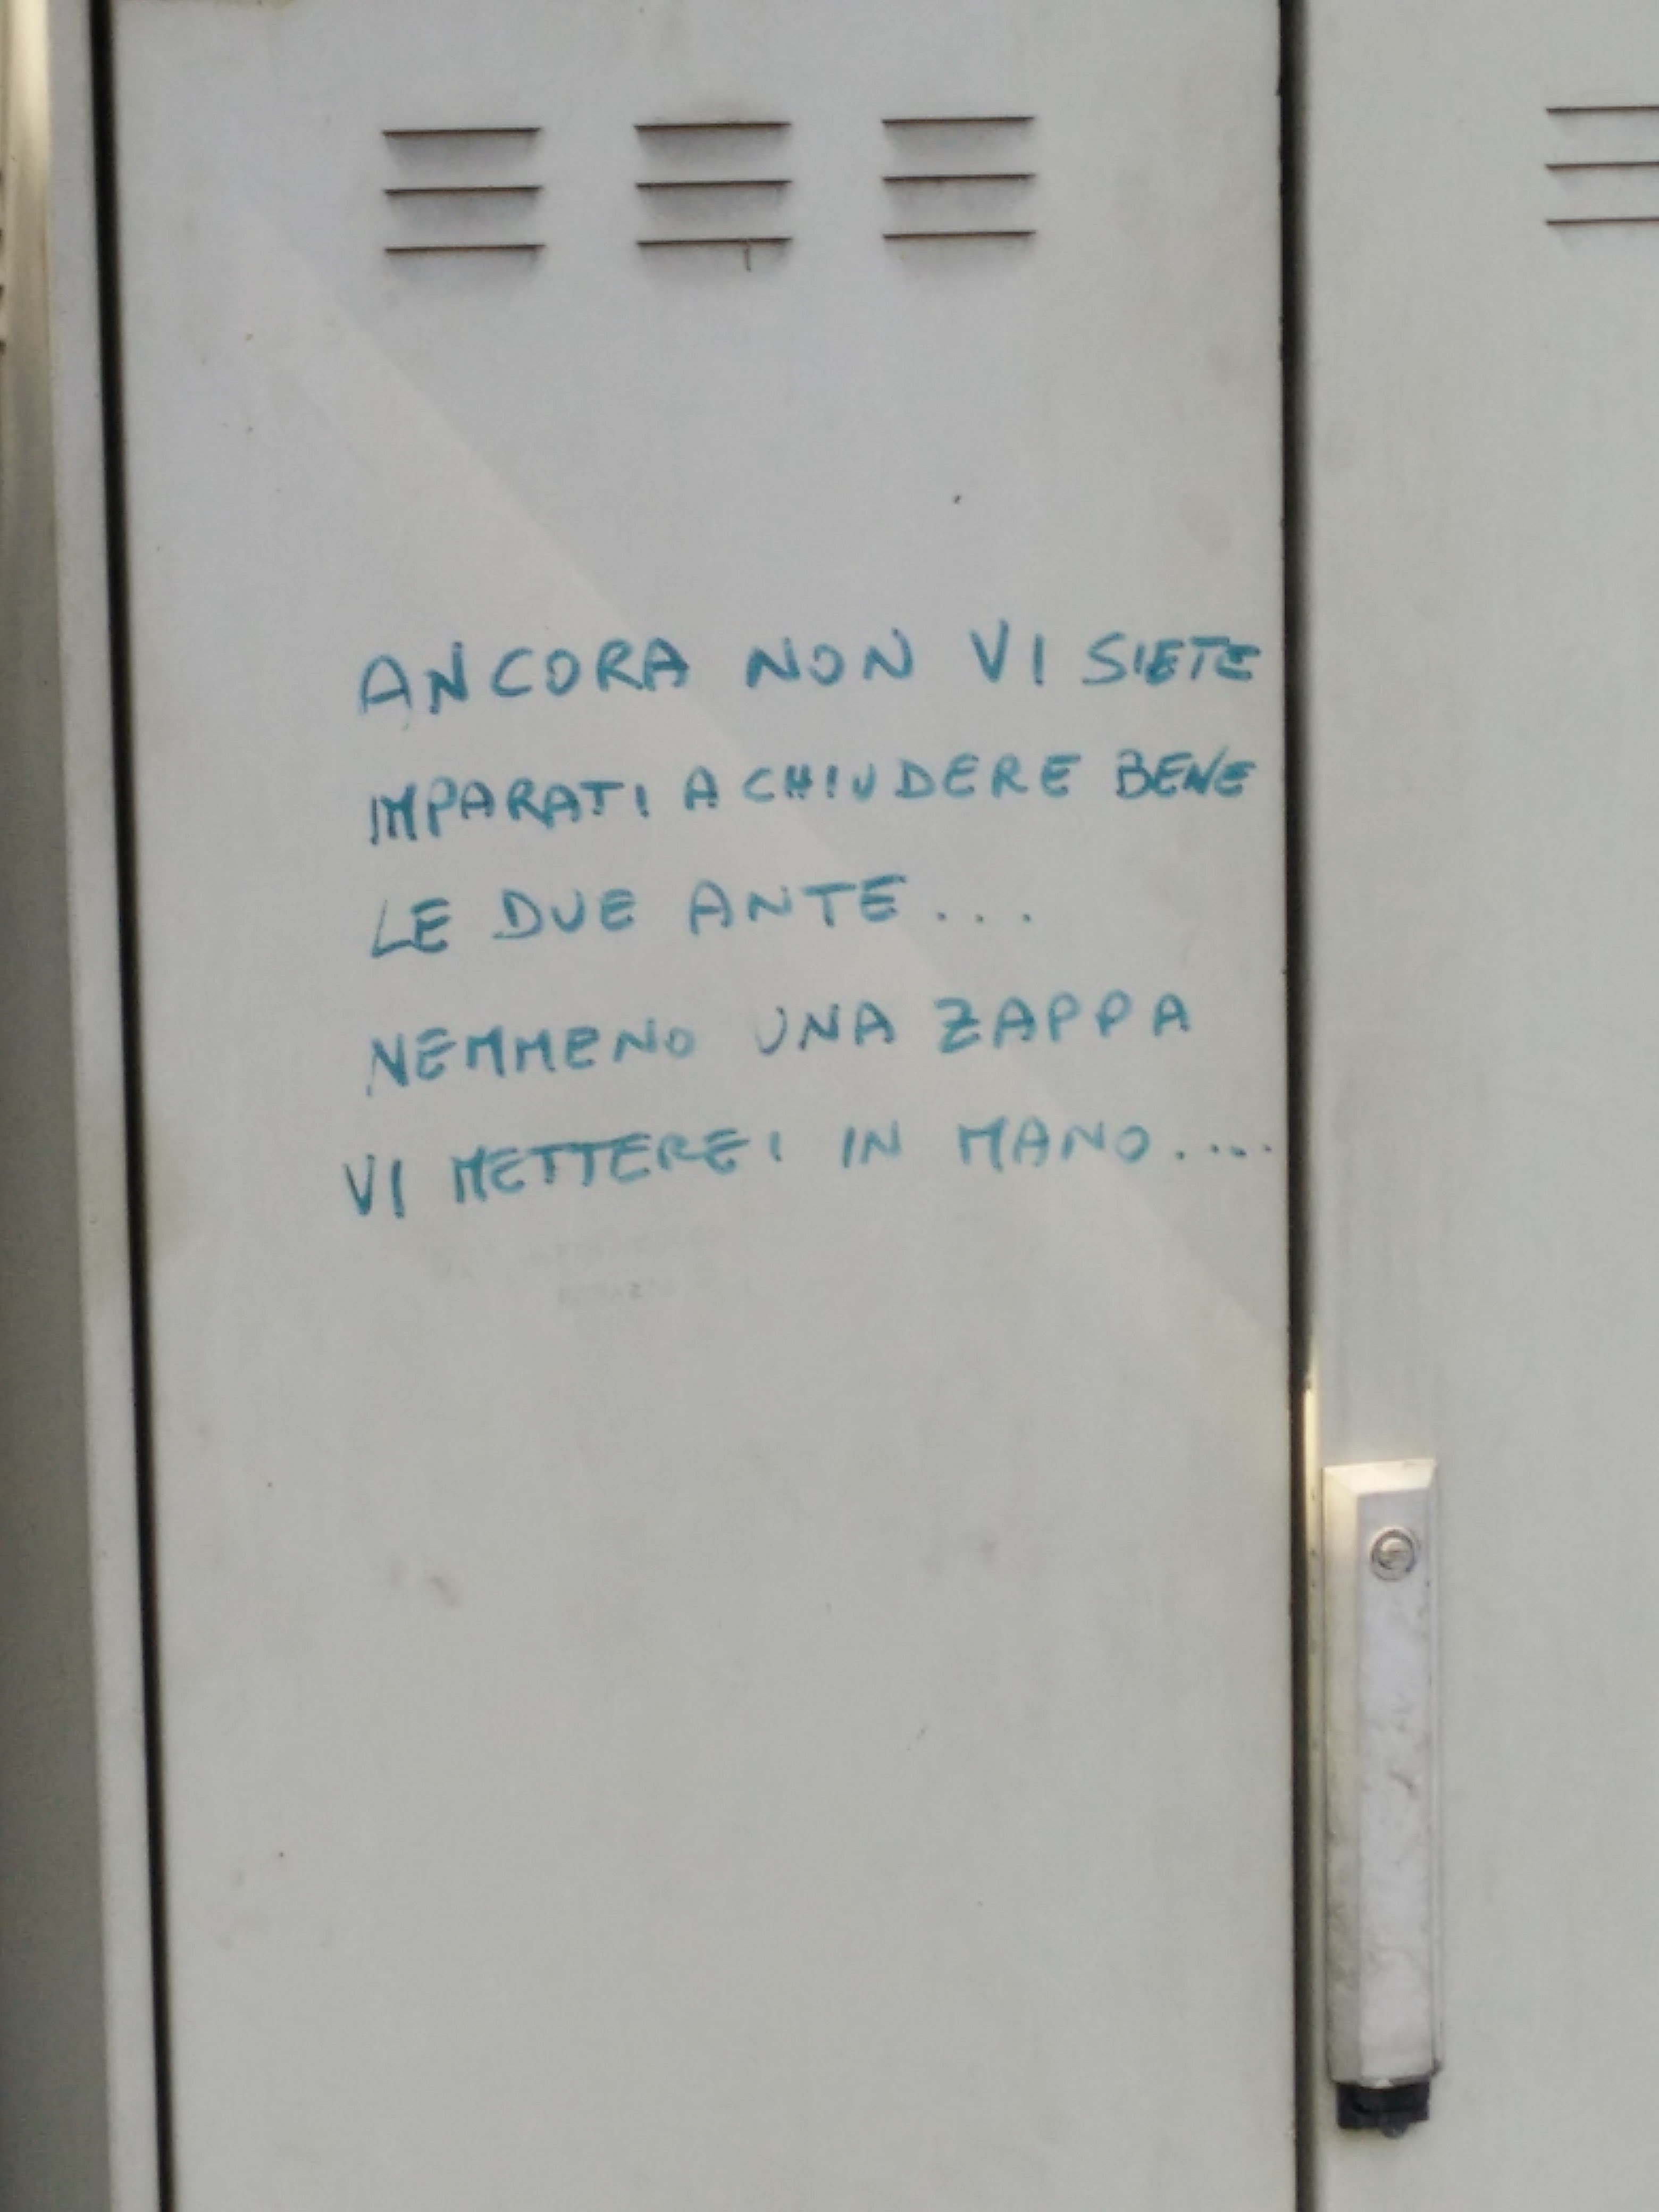 ANCORA NON VI SIETE
IMPARATI A CHIUDERE BENE
LE DUE ANTE...
NEMMENO UNA ZAPPA
VI METTEREI IN MANO....